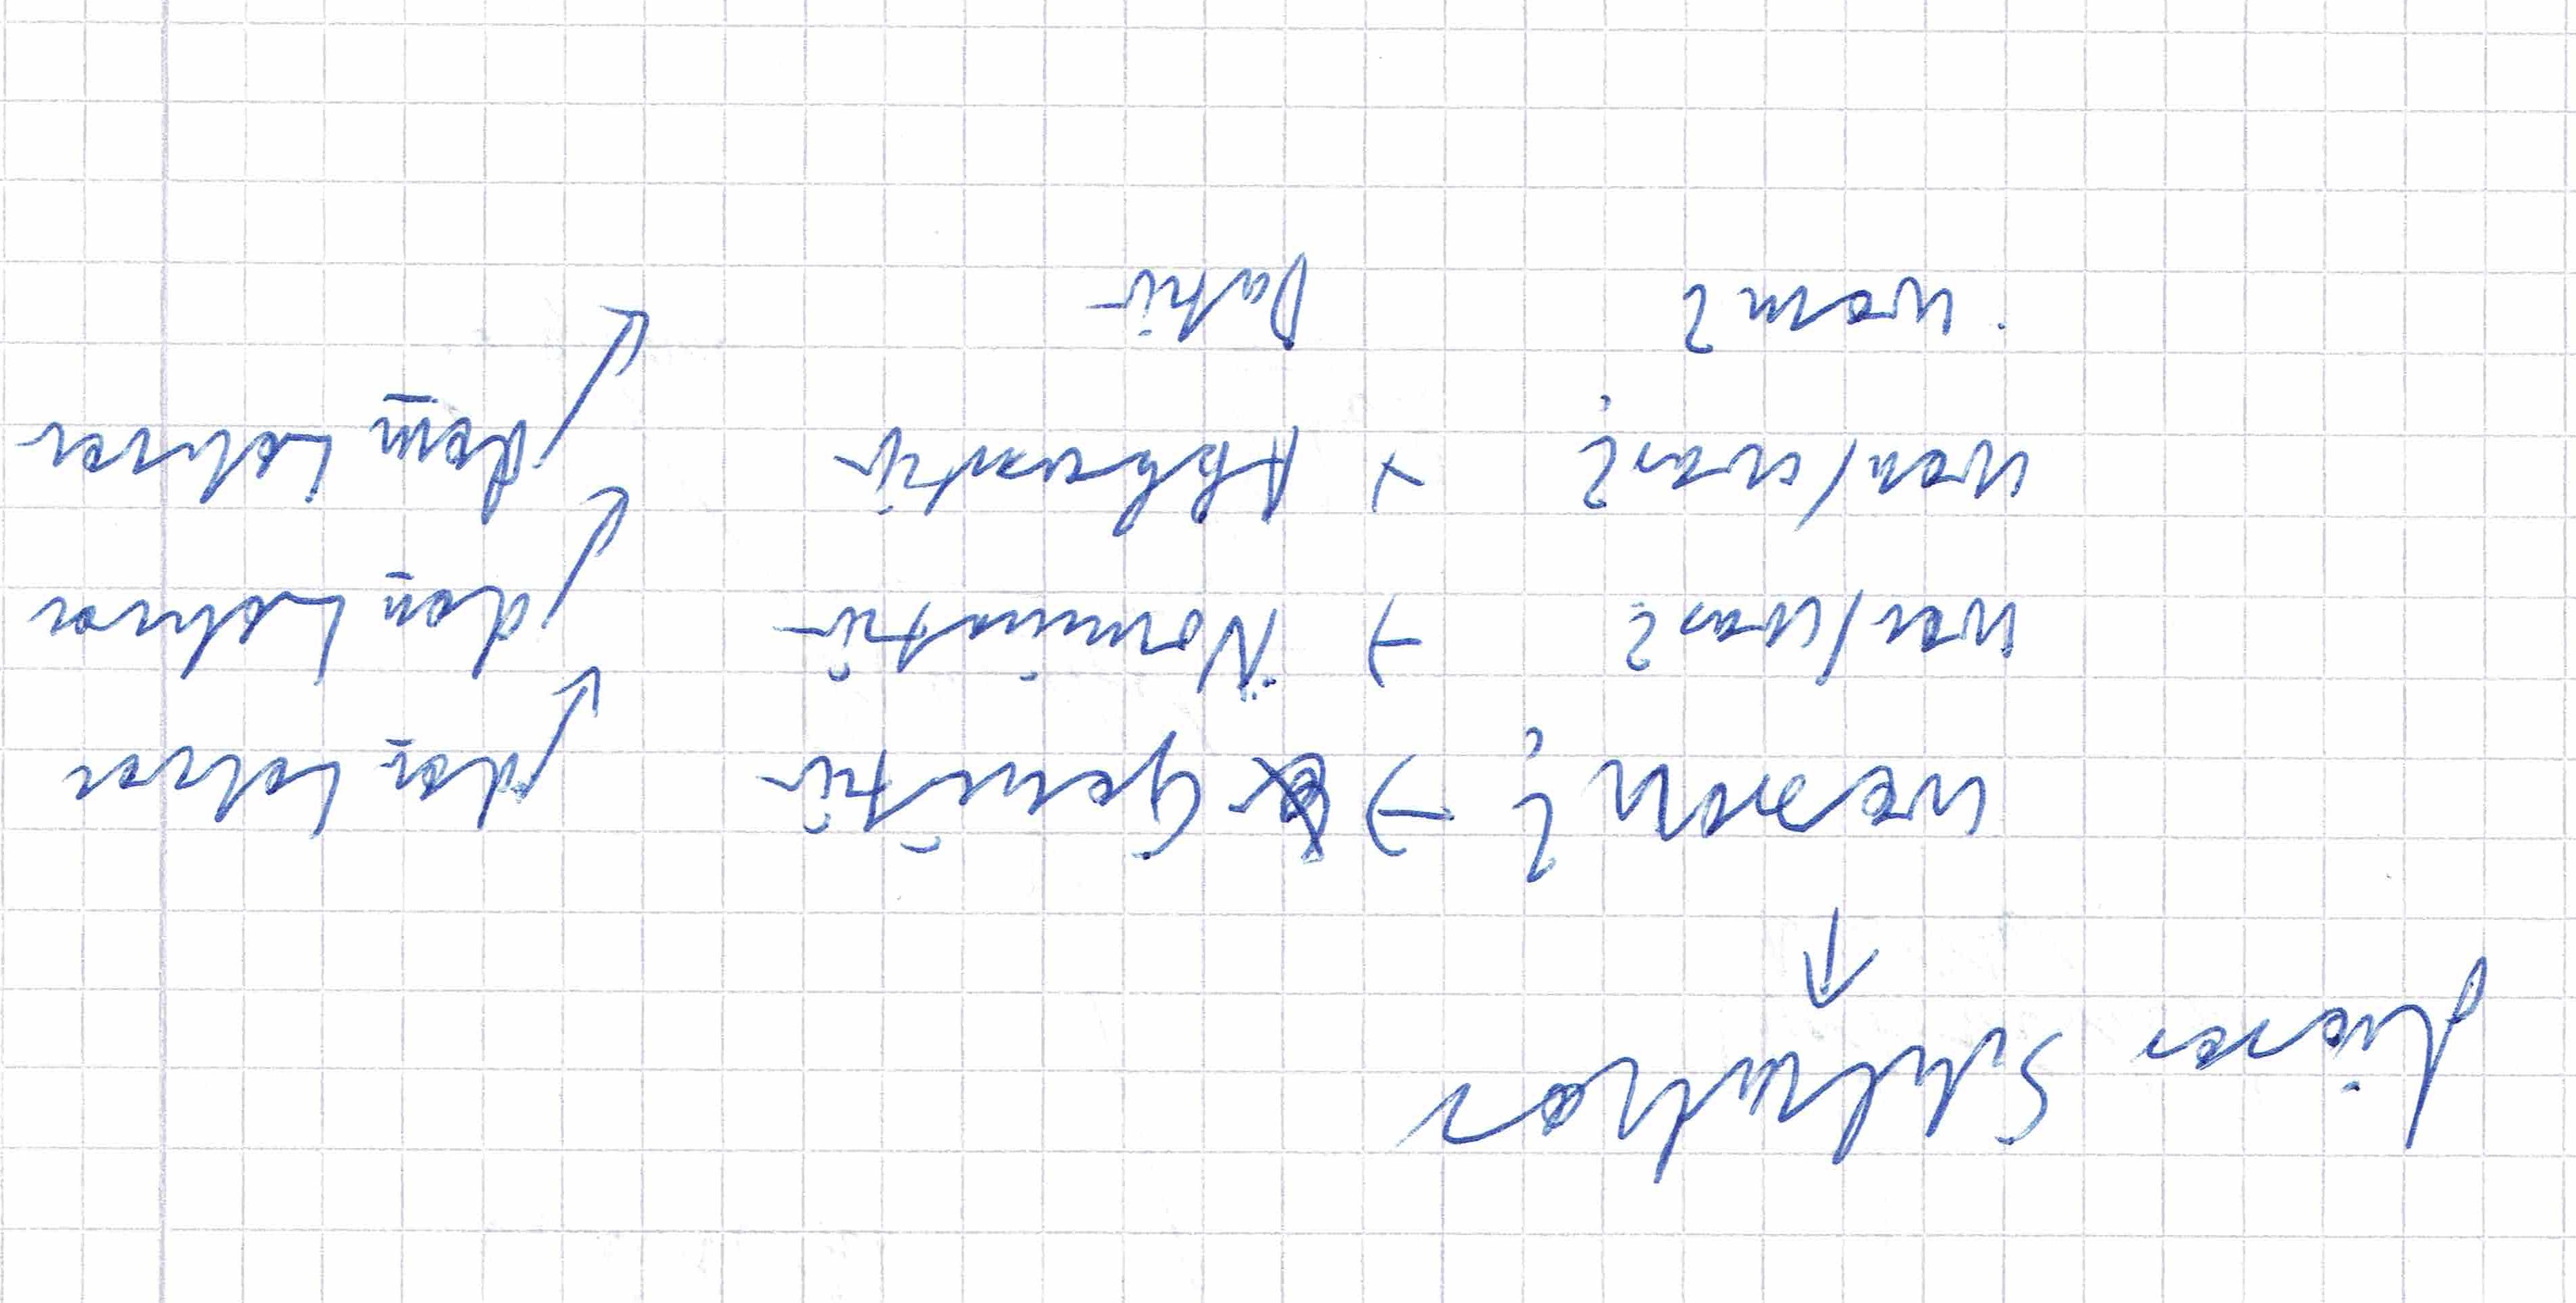 wessen? → Genitiv der Lehrer
wer/was? → Nominativ den Lehrer
wen/was? → Akkusativ dem Lehrer
wem? Dativ